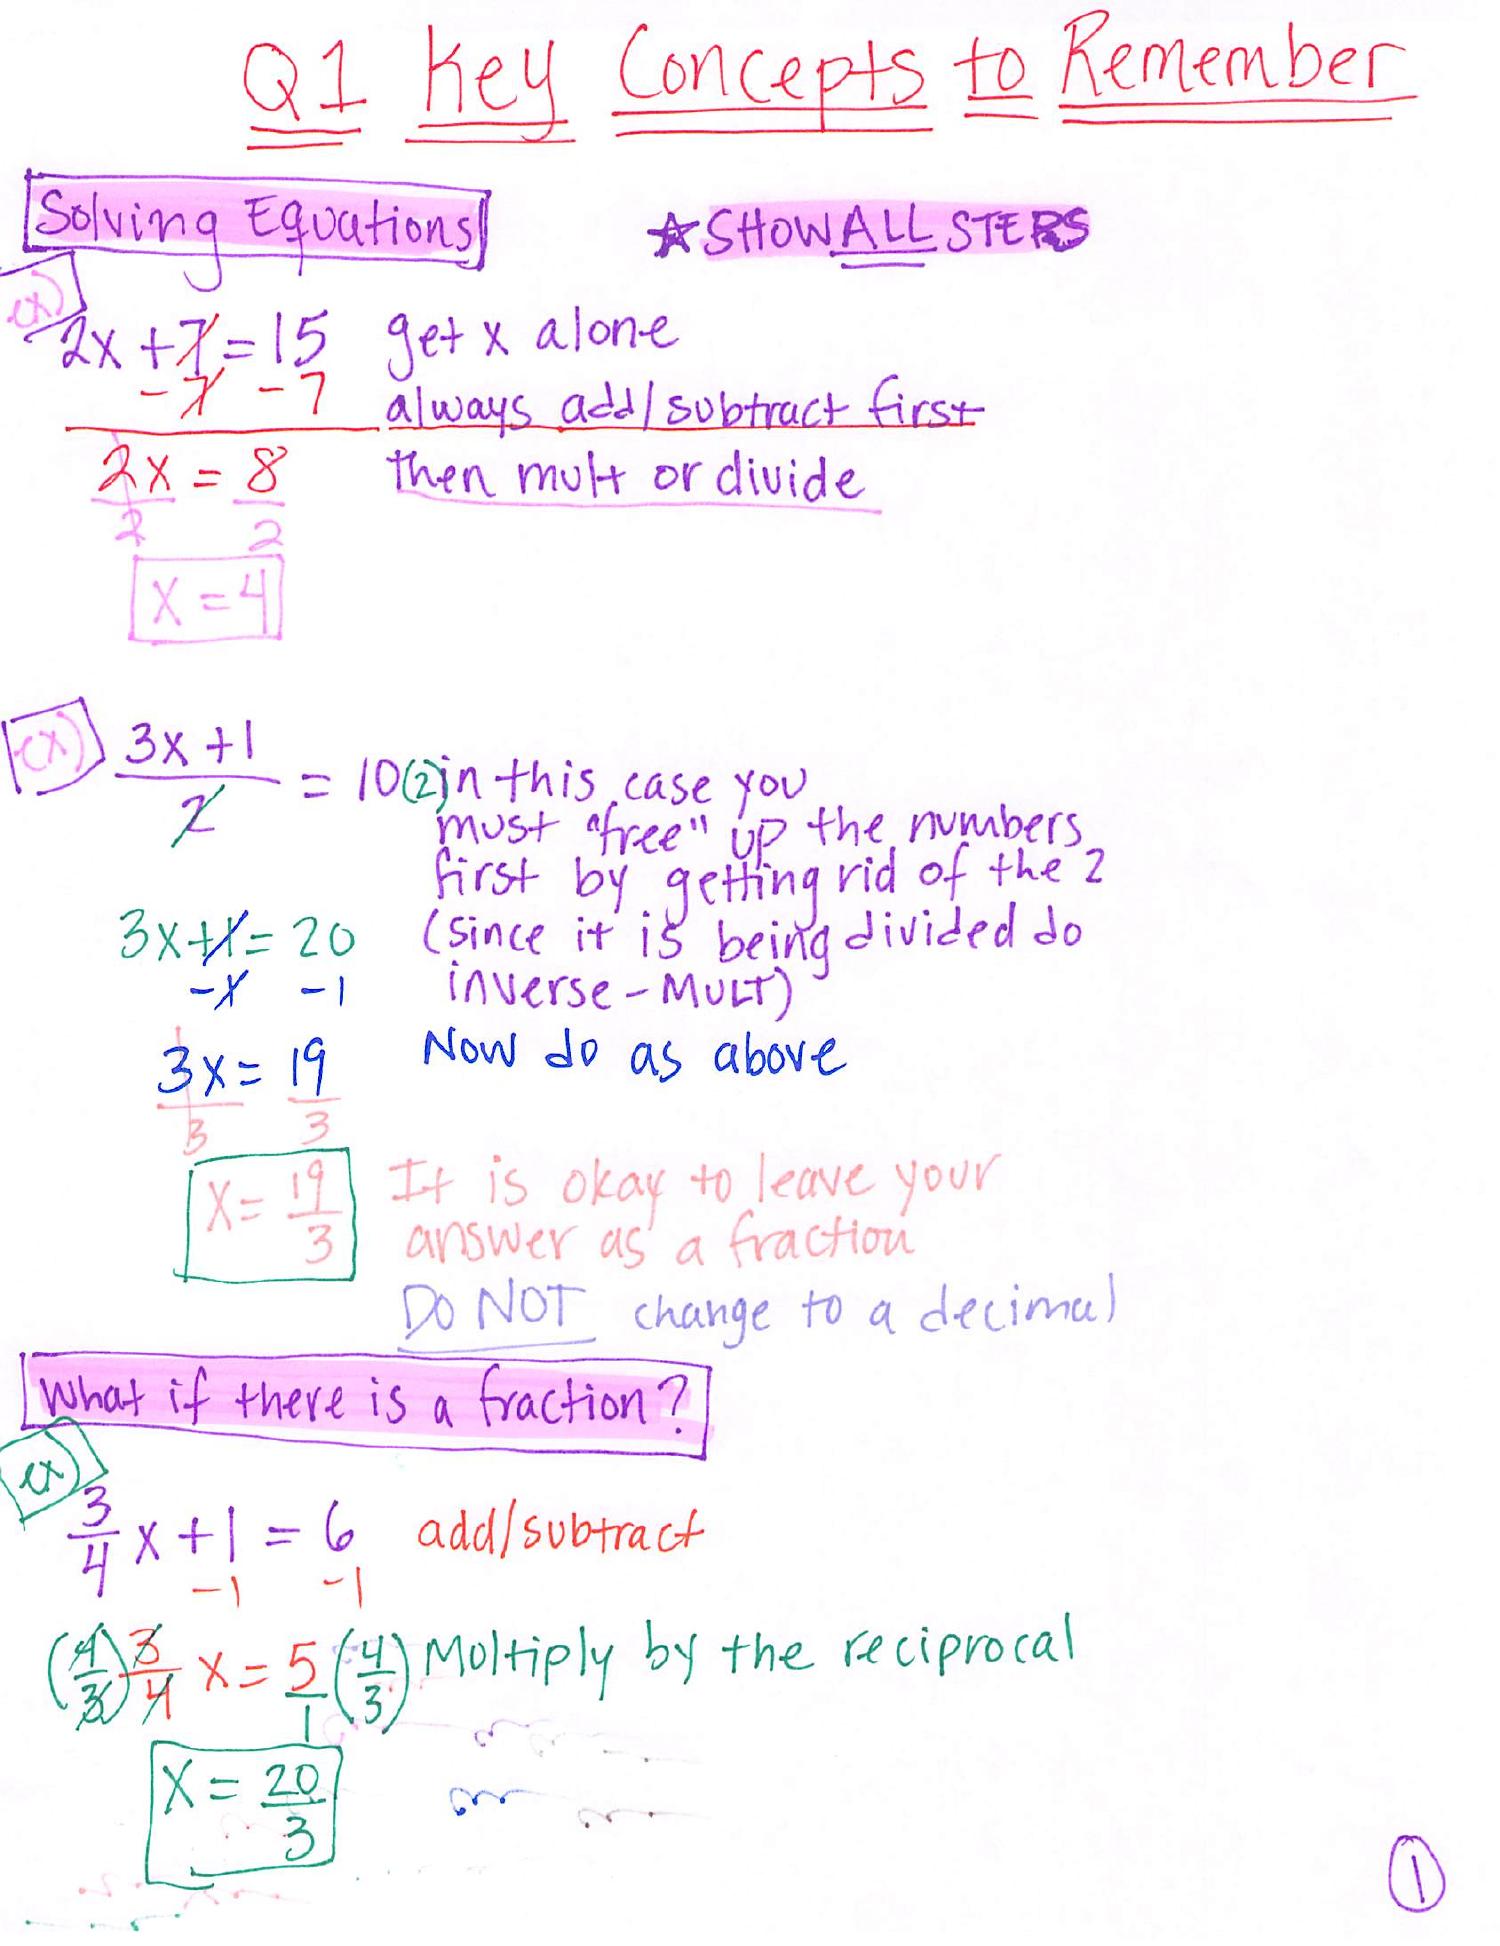 Q1 Key Concepts to Remember
Solving Equations
☆ SHOW ALL STEPS
ex)
2x + 7 = 15 get x alone
- 7 - 7 always add/subtract first
2x = 8 then mult or divide
2 2
x = 4
ex)
3x + 1
2
= 10(2) in this case you
must "free" up the numbers
first by getting rid of the 2
3x + 1 = 20 (since it is being divided do
- 1 - 1 inverse - MULT)
3x = 19 Now do as above
3 3
x = 19/3 It is okay to leave your
answer as a fraction
DO NOT change to a decimal
What if there is a fraction?
ex)
3/4 x + 1 = 6 add/subtract
- 1 - 1
(4/3) 3/4 x = 5/1 (4/3) Moltiply by the reciprocal
X = 20/3
1